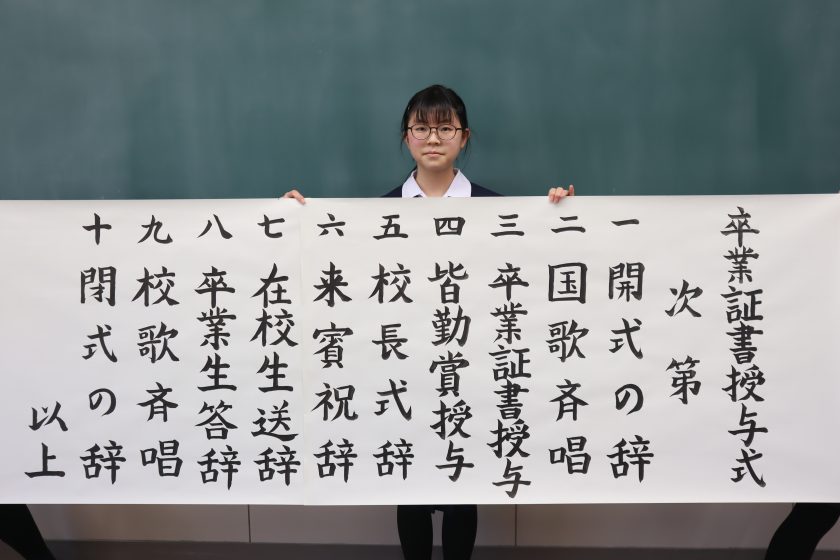 卒業証書授与式
次第
一 開式の辞
二 国歌斉唱
三 卒業証書授与
四 皆勤賞授与
五 校長式辞
六 来賓祝辞
七 在校生送辞
八 卒業生答辞
九 校歌斉唱
十 閉式の辞
以上